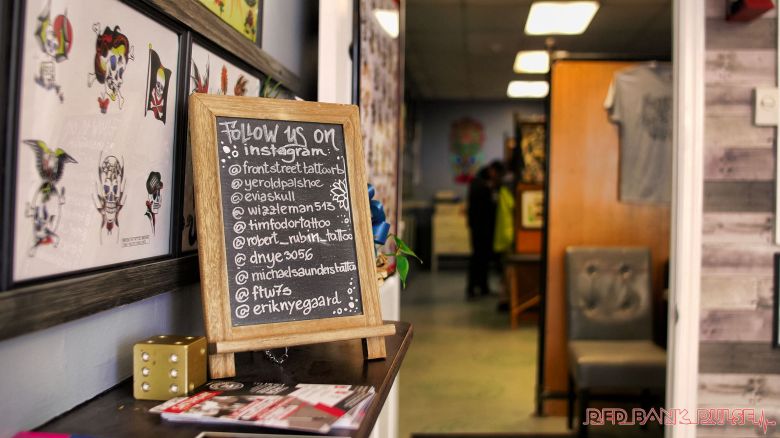 Follow us on
instagram:
@frontstreettattoorb
@yeroldpalshoe
@eviaskull
@wizzleman513
@timfodortattoo
@robert_rubin_tattoo
@dnye3056
@michaelsaunderstattoo
@ftw73
@eriknyegaard
RED BANK PULSE